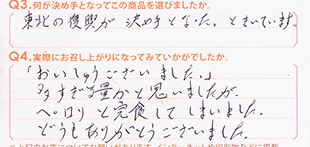 Q3.何が決め手となってこの商品を選びましたか。
東北の復興が 決め手となった。ときいています。
Q4.実際にお召し上がりになってみていかがでしたか。
「おいしゅうございました。」
多すぎる量かと思いましたが、
ペロリと完食してしまいました。
どうもありがとうございました。